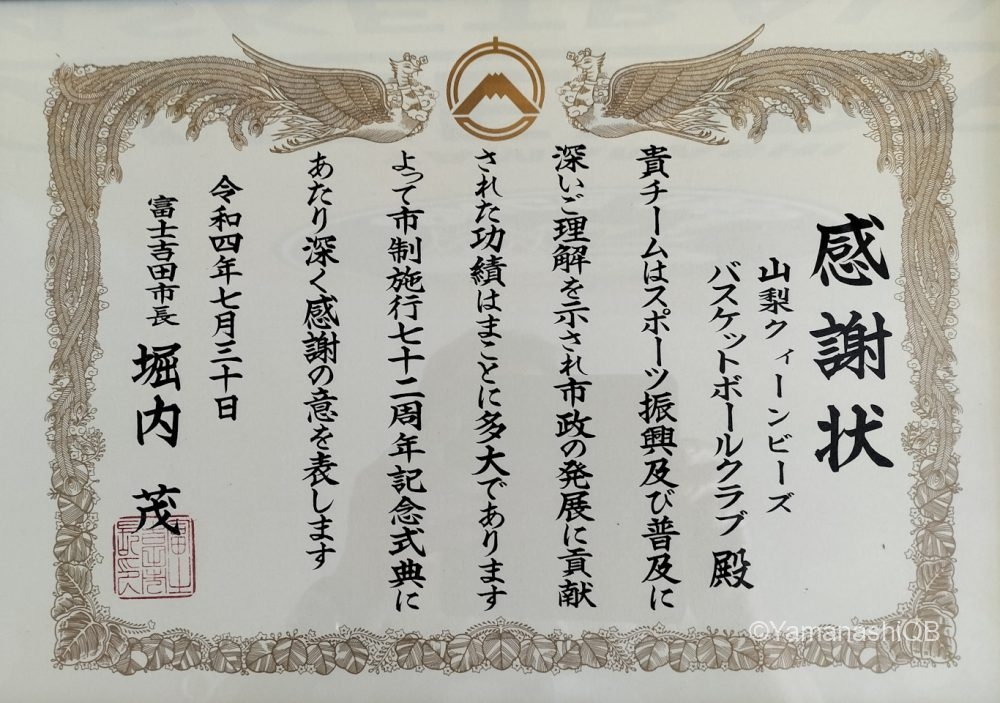 感謝状
山梨クィーンビーズ
バスケットボールクラブ 殿
貴チームはスポーツ振興及び普及に
深いご理解を示され市政の発展に貢献
された功績はまことに多大であります
よって市制施行七十二周年記念式典に
あたり深く感謝の意を表します
令和四年七月三十日
富士吉田市長 堀内 茂
©YamanashiQB